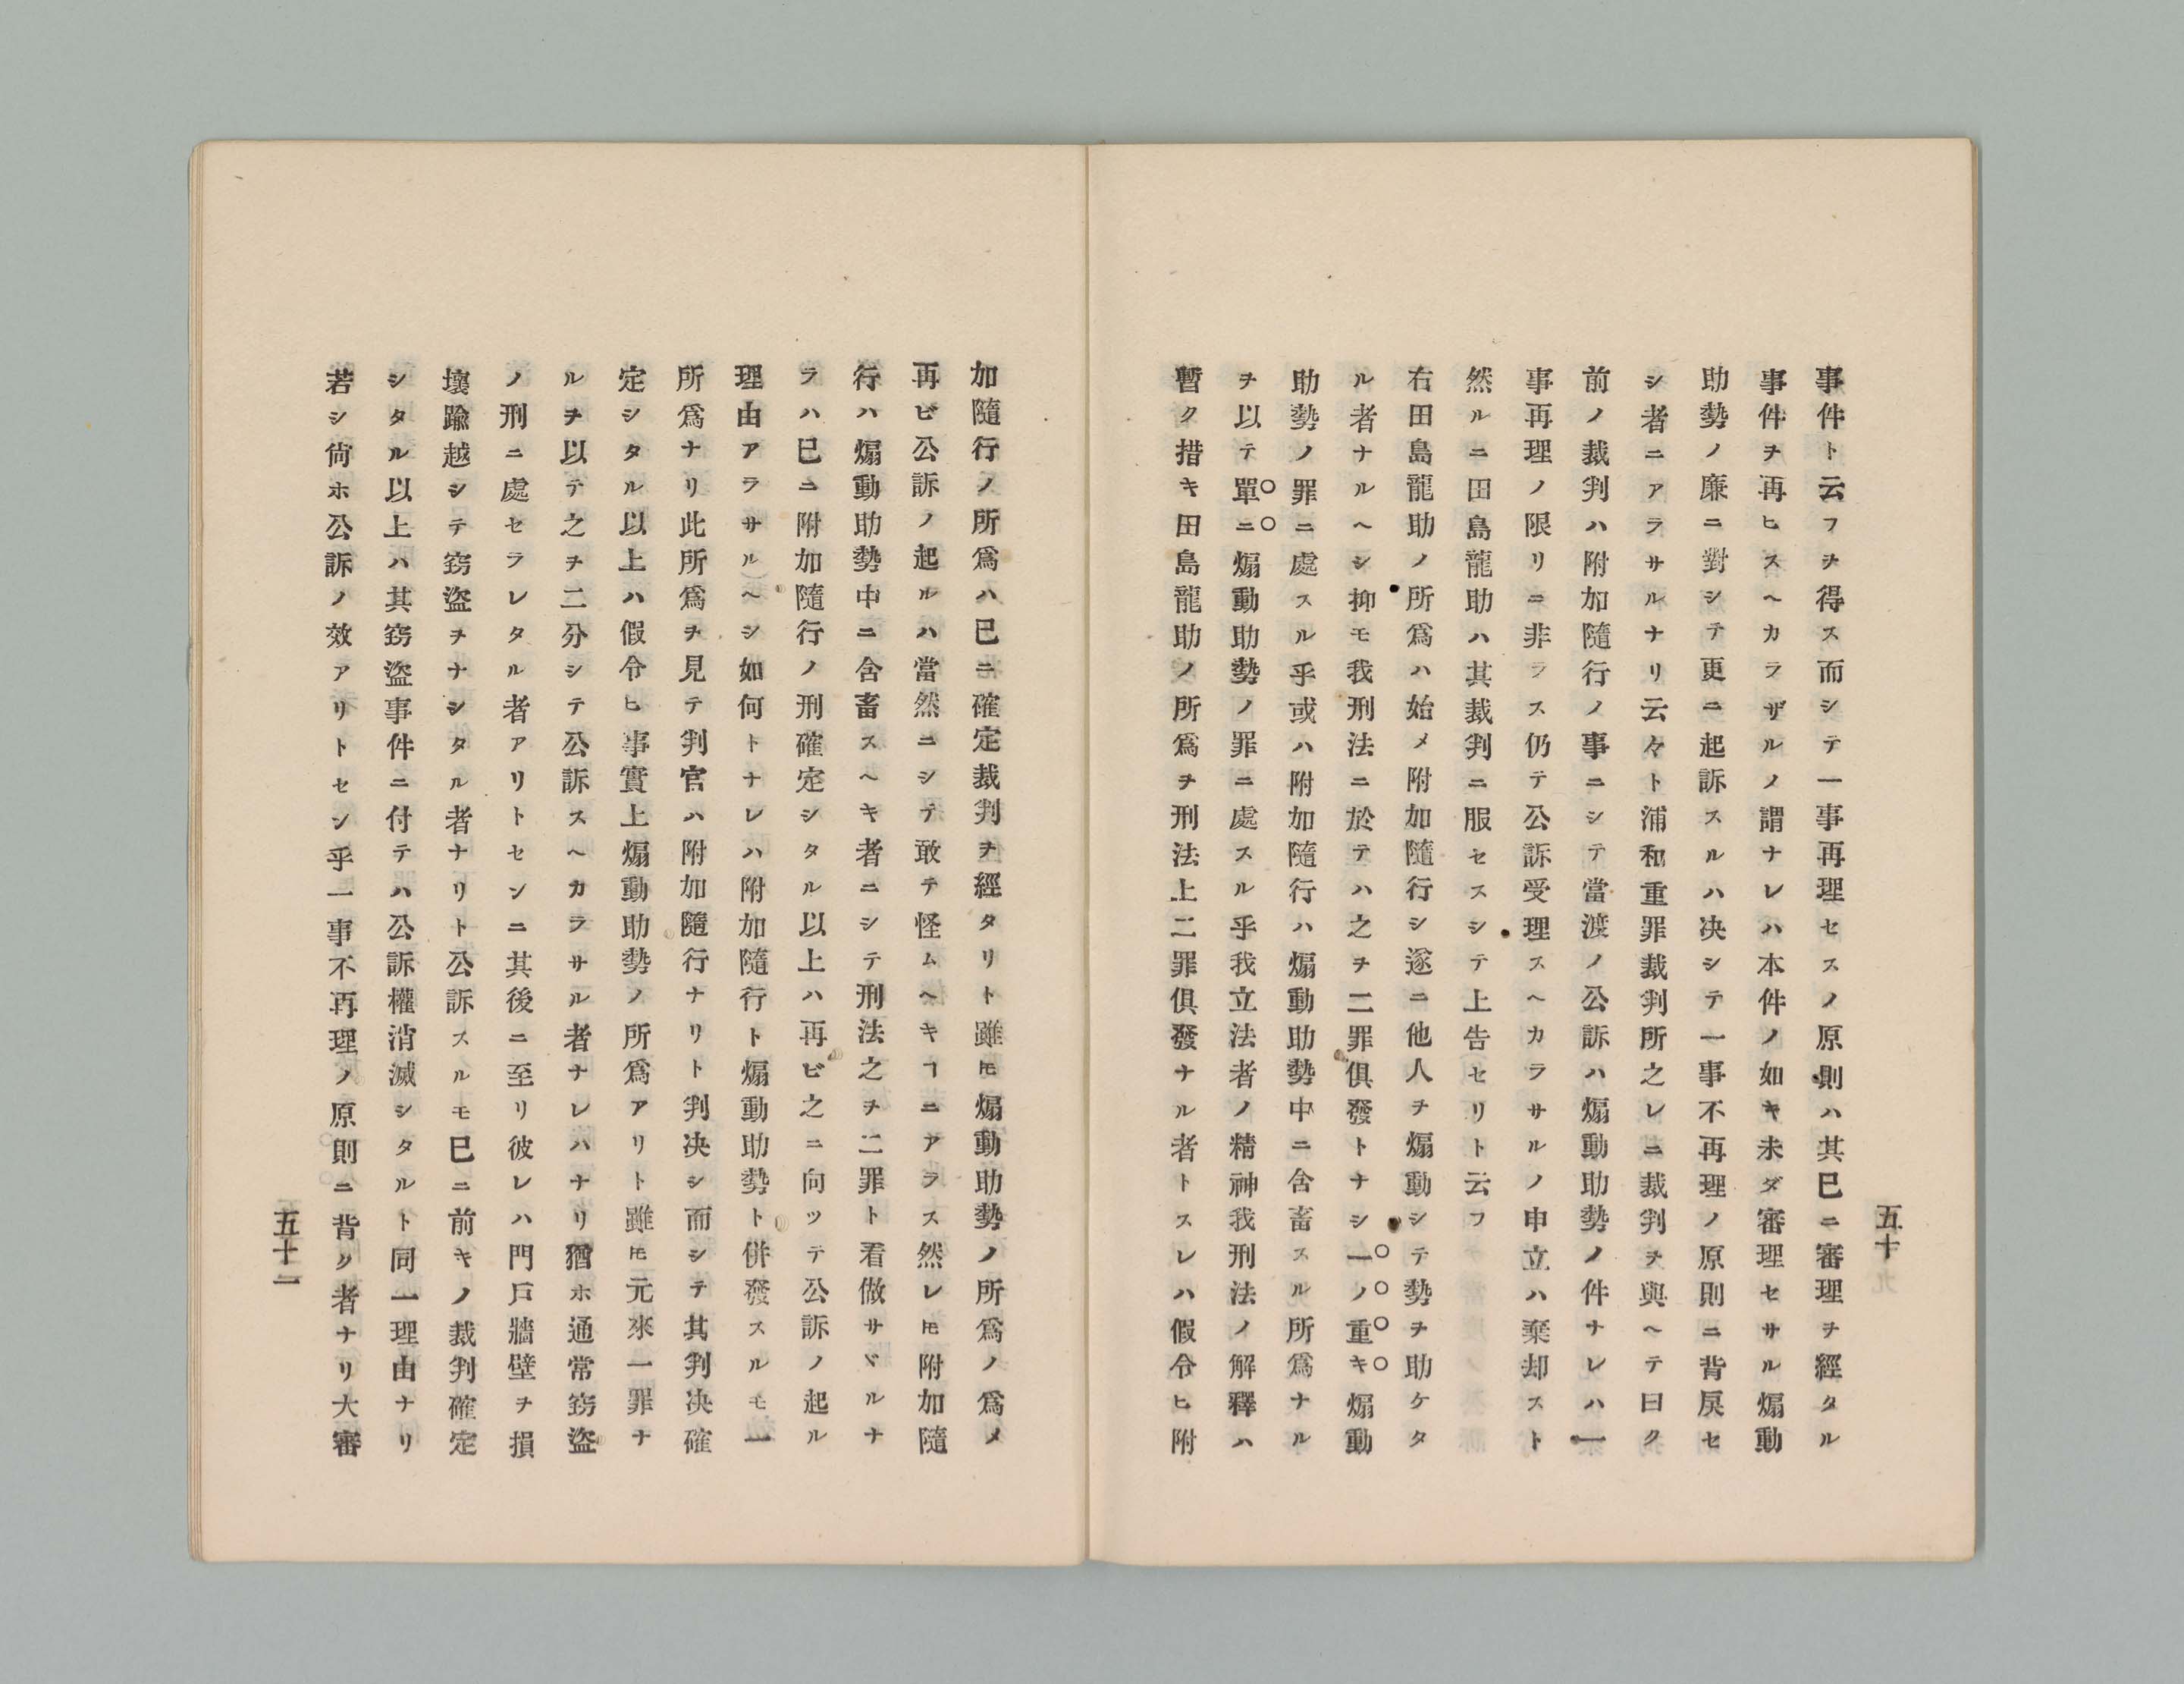 五十
事件ト云フヲ得ス而シテ一事再理セスノ原則ハ其巳ニ審理ヲ經タル
事件ヲ再ヒスヘカラザルノ謂ナレハ本件ノ如キ未ダ審理セサル煽動
助勢ノ廉ニ對シテ更ニ起訴スルハ决シテ一事不再理ノ原則ニ背戻セ
シ者ニアラサルナリ云々ト浦和重罪裁判所之レニ裁判ヲ與ヘテ曰ク
前ノ裁判ハ附加隨行ノ事ニシテ當渡ノ公訴ハ煽動助勢ノ件ナレハ一
事再理ノ限リニ非ラス仍テ公訴受理スヘカラサルノ申立ハ棄却スト
然ルニ田島龍助ハ其裁判ニ服セスシテ上告セリト云フ
右田島龍助ノ所爲ハ始メ附加隨行シ遂ニ他人ヲ煽動シテ勢ヲ助ケタ
ル者ナルヘシ抑モ我刑法ニ於テハ之ヲ二罪俱發トナシ一ノ重キ煽動
助勢ノ罪ニ處スル乎或ハ附加隨行ハ煽動助勢中ニ含畜スル所爲ナル
ヲ以テ單ニ煽動助勢ノ罪ニ處スル乎我立法者ノ精神我刑法ノ解釋ハ
暫ク措キ田島龍助ノ所爲ヲ刑法上二罪俱發ナル者トスレハ假令ヒ附
加隨行ノ所爲ハ巳ニ確定裁判ヲ經タリト雖𪜈煽動助勢ノ所爲ノ爲メ
再ビ公訴ノ起ルハ當然ニシテ敢テ怪ムヘキヿニアラス然レ𪜈附加隨
行ハ煽動助勢中ニ含畜スヘキ者ニシテ刑法之ヲ二罪ト看做サヾルナ
ラハ巳ニ附加隨行ノ刑確定シタル以上ハ再ビ之ニ向ッテ公訴ノ起ル
理由アラサルヘシ如何トナレハ附加隨行ト煽動助勢ト併發スルモ一
所爲ナリ此所爲ヲ見テ判官ハ附加隨行ナリト判决シ而シテ其判决確
定シタル以上ハ假令ヒ事實上煽動助勢ノ所爲アリト雖𪜈元來一罪ナ
ルヲ以テ之ヲ二分シテ公訴スヘカラサル者ナレハナリ猶ホ通常窃盜
ノ刑ニ處セラレタル者アリトセンニ其後ニ至リ彼レハ門戸牆壁ヲ損
壞踰越シテ窃盜ヲナシタル者ナリト公訴スルモ巳ニ前キノ裁判確定
シタル以上ハ其窃盜事件ニ付テハ公訴權消滅シタルト同一理由ナリ
若シ尙ホ公訴ノ效アリトセン乎一事不再理ノ原則ニ背ク者ナリ大審
五十一